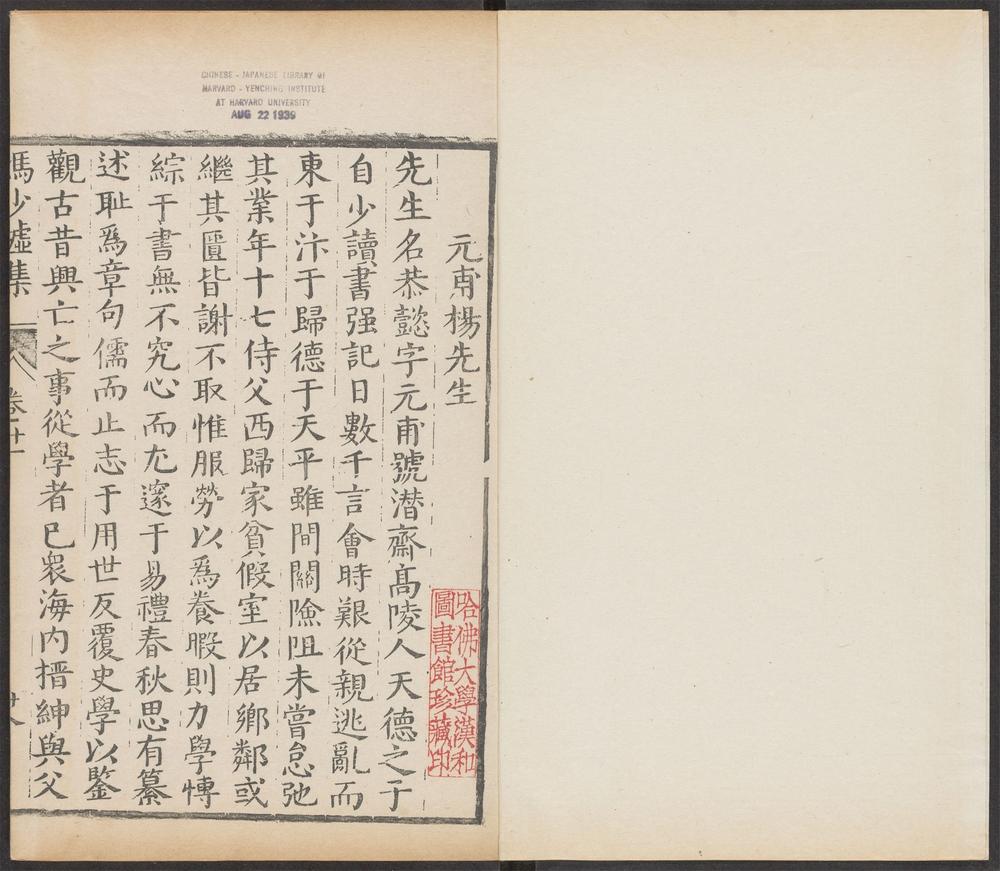 CHINESE - JAPANESE LIBRARY OF
HARVARD - YENCHING INSTITUTE
AT HARVARD UNIVERSITY
AUG 22 1939
元甫楊先生
哈佛大學漢和
圖書館珍藏印
先生名恭懿字元甫號潛齋高陵人天德之子
自少讀書强記日數千言會時艱從親逃亂而
東于汴于歸德于天平雖間關險阻未嘗怠弛
其業年十七侍父西歸家貧假室以居鄉鄰或
繼其匱皆謝不取惟服勞以爲養暇則力學愽
綜于書無不究心而尤邃于易禮春秋思有纂
述耻爲章句儒而止志于用世反覆史學以鑒
觀古昔興亡之事從學者已衆海内搢紳與父
馮少墟集
卷二十一